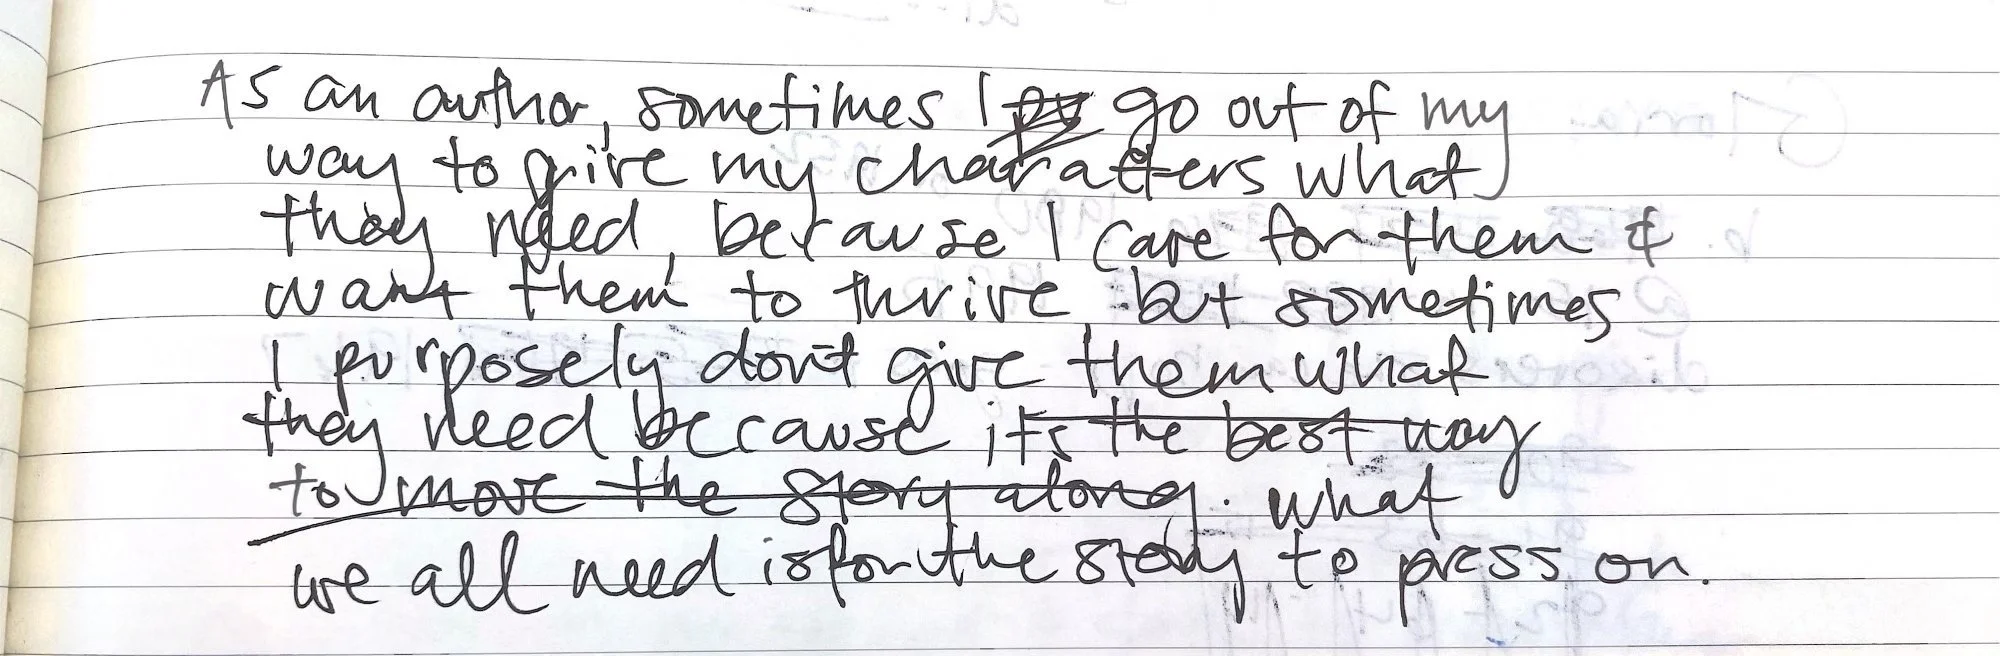 As an author, sometimes I go out of my
way to give my characters what
they need, because I care for them &
want them to thrive but sometimes
I purposely don't give them what
they need because it's the best way
to move the story along. what
we all need is for the story to press on.